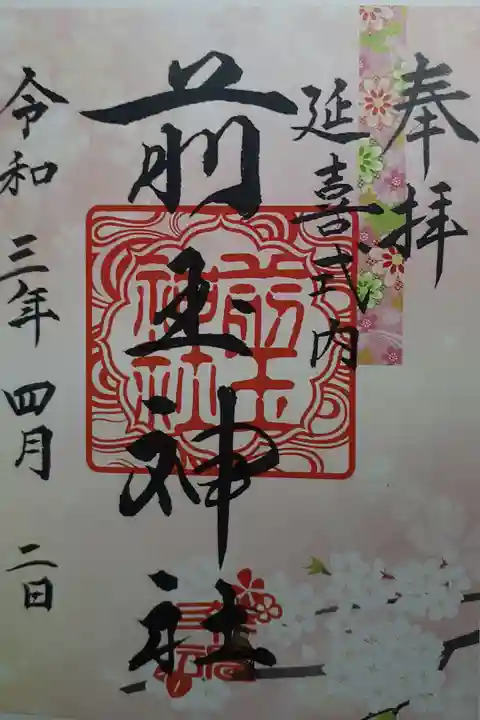 奉拝
延喜式内
前玉神社
前玉神社
令和三年四月二日